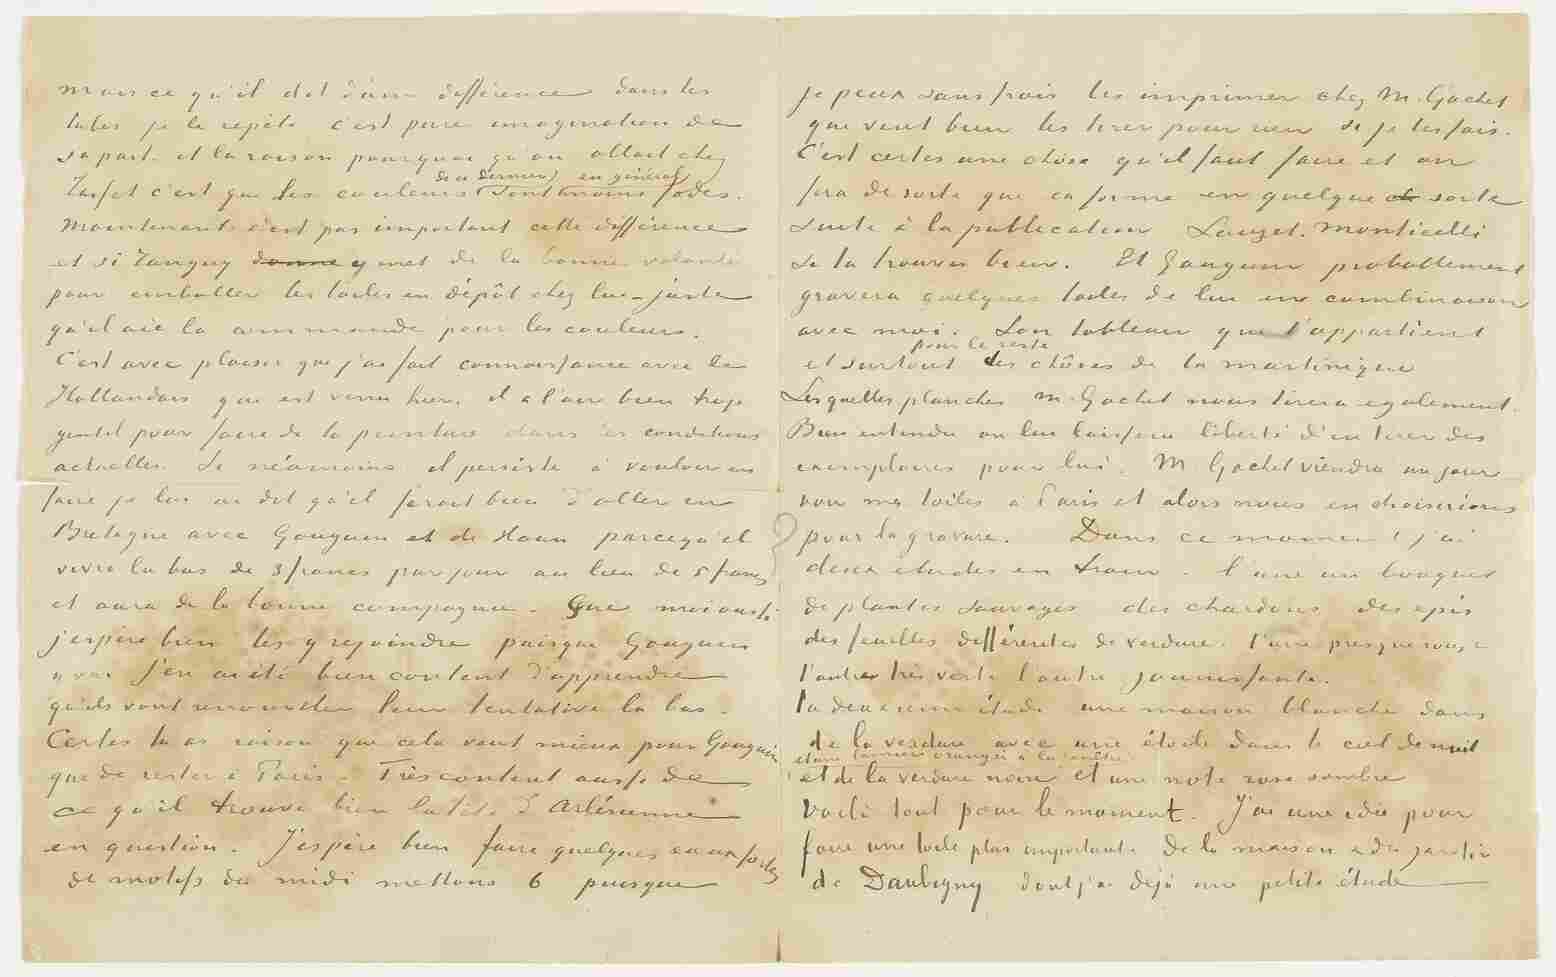 mais ce qu'il dit d'une différence dans les
toiles je le repète c'est pure imagination de
sa part. et la raison pourquoi qu'on allait chez
de ce dernier) en général
Tasset c'est que les couleurs (sont moins fades.
Maintenant c'est pas important cette différence
et si Tanguy donne y met de la bonne volonté
pour emballer les toiles en dépôt chez lui – juste
qu'il aie la commande pour les couleurs.
C'est avec plaisir que j'ai fait connaissance avec le
Hollandais qui est venu hier, il a l'air bien trop
gentil pour faire de la peinture dans les conditions
actuelles. Si néamoins il persiste à vouloir en
faire je lui ai dit qu'il ferait bien d'aller en
Bretagne avec Gauguin et de Haan parcequ'il
vivra là bas de 3 francs par jour au lieu de 5 francs
et aura de la bonne compagnie. Que moi aussi
j'espère bien les y rejoindre puisque Gauguin
y va. J'en ai été bien content d'apprendre
qu'ils vont renouveler leur tentative là bas.
Certes tu as raison que cela vaut mieux pour Gauguin
que de rester à Paris. Très content aussi de
ce qu'il trouve bien la tête d'Arlésienne
en question. J'espère bien faire quelques eaux fortes
de motifs du midi mettons 6 puisque
je peux sans frais les imprimer chez M. Gachet
qui veut bien les tirer pour rien si je les fais.
C'est certes une chose qu'il faut faire et on
fera de sorte que ca forme en quelque sorte
suite à la publication Lauzet. Monticelli
si tu trouves bien. Et Gauguin probablement
gravera quelques toiles de lui en combinaison
avec moi. Son tableau que t'appartient
pour le reste
et surtout les chôses de la martinique
Lesquelles planches M. Gachet nous tirera egalement.
Bien entendu on lui laissera liberté d'en tirer des
exemplaires pour lui. M. Gachet viendra un jour
voir mes toiles à Paris et alors nous en choisirions
pour la gravure. Dans ce moment j'ai
deux etudes en train. l'une un bouquet
de plantes sauvages des chardons des epis
des feuilles différentes de verdure. l'une presque rouge
l'autre très verte l'autre jaunissante.
la deuxieme étude une maison blanche dans
de la verdure avec une étoile dans le ciel de nuit
et une lumière orangée à la fenêtre
et de la verdure noire et une note rose sombre
Voilà tout pour le moment. J'ai une idée pour
faire une toile plus importante de la maison & du jardin
de Daubigny dont j'ai déjà une petite étude